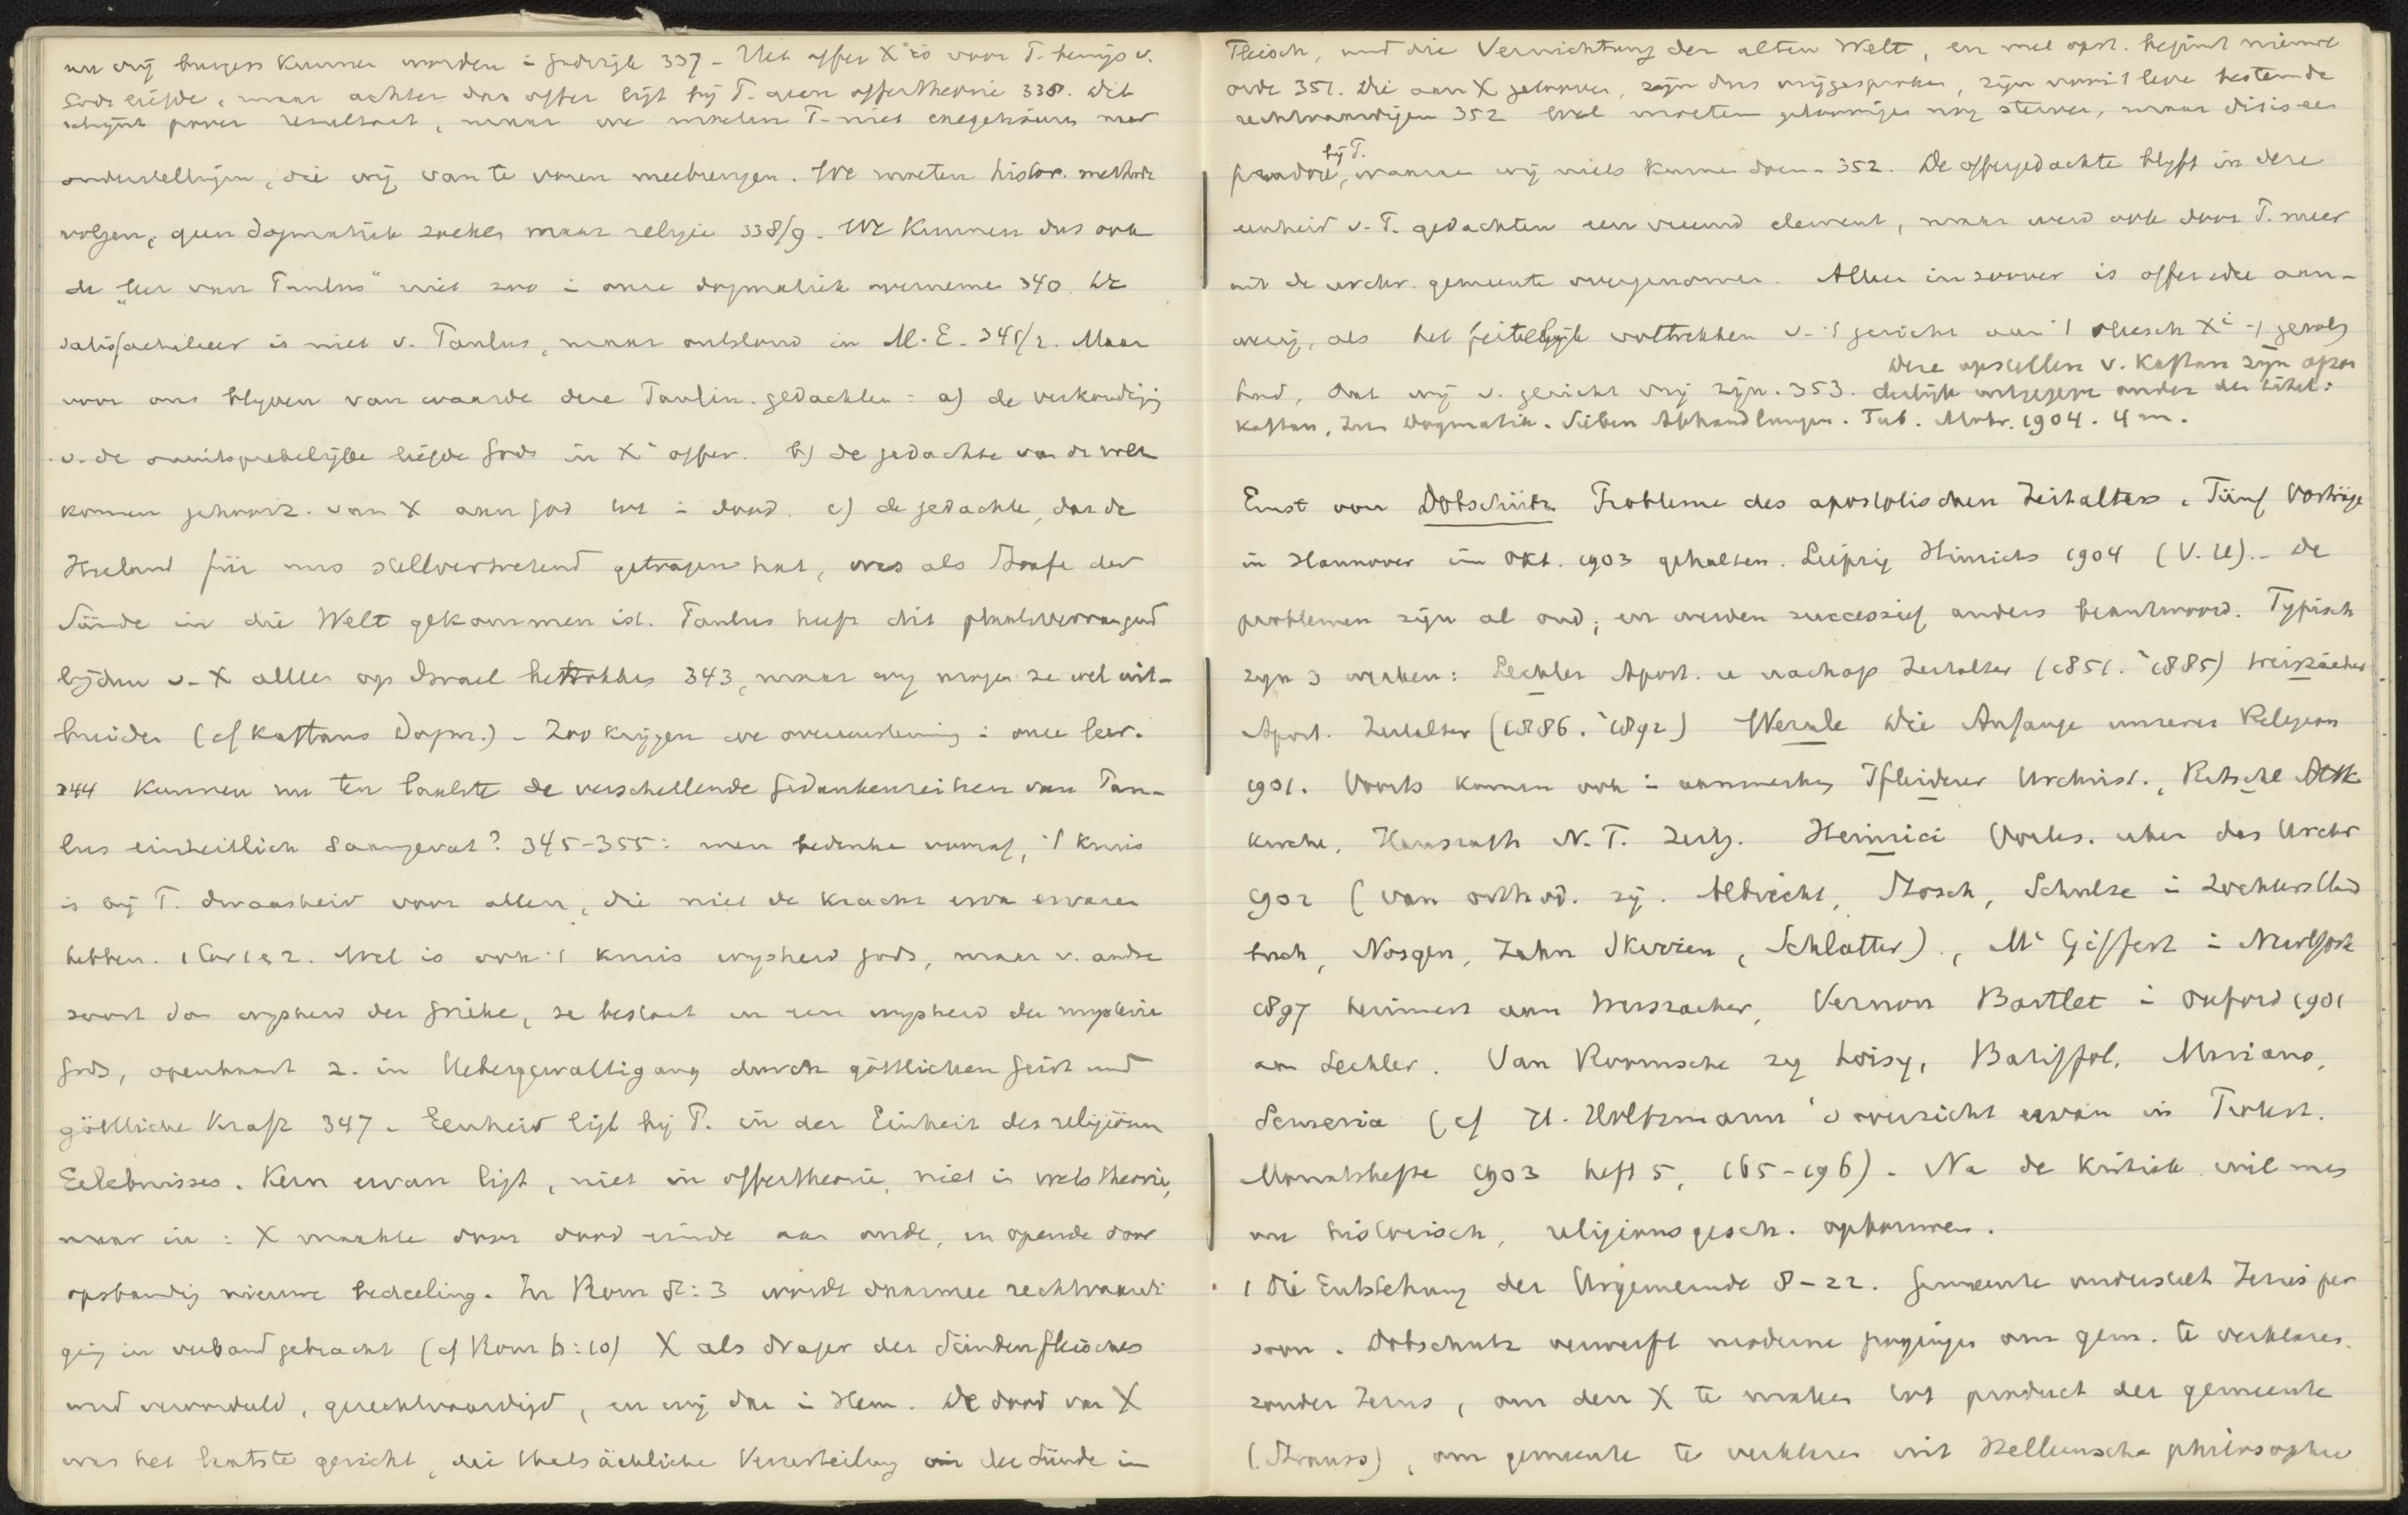 en wij burgers kunnen worden i Godsrijk 337 - Het offer X' is voor P. bewijs v.
Gods liefde, maar achter dat offer ligt bij P. geen offertheorie 338. Dit
schijnt pover resultaat, maar we moeten P. niet exegetiseeren met
onderstellingen, die wij van te voren meebrengen. We moeten histor. methode
volgen, geen dogmatiek zoeken maar religie 338/9. We kunnen dus ook
de "leer van Paulus" niet zoo i onze dogmatiek overnemen 340. De
satisfactieleer is niet v. Paulus, maar ontstond in M.E. 341/2. Maar
voor ons blijven van waarde deze Paulin. gedachten: a) de verkondiging
v. de onuitsprekelijke liefde Gods in X' offer. b) de gedachte van de vol-
komen gehoorz. van X aan God tot i dood. c) de gedachte, dat de
Heiland für uns stellvertretend getragen hat, was als Strafe der
Sünde in die Welt gekommen ist. Paulus heeft dit plaatsvervangend
lijden v. X alleen op Israel betrokken 343, maar wij mogen ze wel uit-
breiden (cf Kaftans Dogm.) - Zoo krijgen we overeenstemming i onze leer.
344 Kunnen nu ten laatste de verschillende Gedankenreihen van Pau-
lus einheitlich saamgevat? 345-355: men bedenke vooraf, 't kruis
is bij P. dwaasheid voor allen, die niet de kracht ervan ervaren
hebben. 1 Cor 1 e 2. Wel is ook 't kruis wijsheid Gods, maar v. andre
soort dan wijsheid der Grieke, ze bestaat in een wijsheid der mysterie
Gods, openbaart z. in Uebergewaltigung durch göttlichen Geist und
göttliche Kraft 347. Eenheid ligt bij P. in der Einheit des religiösen
Erlebnisses. Kern ervan ligt, niet in offertheorie, niet in wetstheorie,
maar in: X maakte door dood einde aan oude, en opende door
opstanding nieuwe bedeeling. In Rom 8:3 wordt daarmee rechtvaardi-
ging in verband gebracht (cf Rom 6:10) X als drager des Sündenfleisches
werd veroordeeld, gerechtvaardigd, en wij dus i Hem. De dood van X
was het laatste gericht, die thatsächliche Verurteilung der Sünde im
Fleisch, und die Vernichtung der alten Welt, en met opst. begint nieuwe
orde 351. Die aan X gelooven, zijn dus vrijgesproken, zijn voor 't leve bestemde
rechtvaardigen 352 Wel moeten geloovigen nog sterven, maar dit is een
paradox bij T., waaraan wij niets kunnen doen - 352. De offergedachte blijft in deze
eenheid v. P. gedachten een vreemd element, maar werd ook door P. meer
uit de urchr. gemeente overgenomen. Alleen in zoover is offeridee aan-
wezig, als het feitelijk voltrekken v. 't gericht aan 't vleesch X' 't gevolg
had, dat wij v. gericht vrij zijn. 353. Deze opstellen v. Kaftan zijn afzon
derlijk uitgegeven onder den titel:
Kaftan, Zur Dogmatik. Sieben Abhandlungen. Tub. Mohr. 1904. 4 m.
Ernst von Dobschütz Probleme des apostolischen Zeitalters. Fünf Vorträge
in Hannover im Okt. 1903 gehalten. Leipzig Hinrichs 1904 (V.U). - De
problemen zijn al oud, en werden successief anders beantwoord. Typisch
zijn 3 werken: Lechler Apost. u nachap Zeitalter (1851. ³1885) Weizsäcker
Apost. Zeitalter (1886. ²1892) Wernle Die Anfänge unserer Religion
1901. Voorts komen ook i aanmerking Pfleiderer Urchrist., Ritschl Altk
Kirche, Hausrath N.T. Zeitg. Heinrici Vorles. uber das Urchr
1902 (van orthod. zij. Albrecht, Bosch, Schulze i Zochlers Hand
buch, Nosgen, Zahn Skizzen, Schlatter)., Mc Giffert i NewYork
1897 herinnert aan Weizsäcker, Vernon Bartlet i Oxford 1901
aan Lechler. Van Roomsche zij Loisy, Batiffol, Mariano,
Semeria (cf H. Holtzmann's overzicht ervan in Protest.
Monatshefte 1903 heft 5, 165-196). Na de kritiek wil men
nu historisch, religionsgesch. opbouwen.
1 Die Entstehung der Urgemeinde 8-22. Gemeente onderstelt Jezus per
soon. Dobschutz verwerpt moderne pogingen om gem. te verklaren
zonder Jezus, om den X te maken tot product der gemeente
(Strauss), om gemeente te verklaren uit Helleensche philosophie